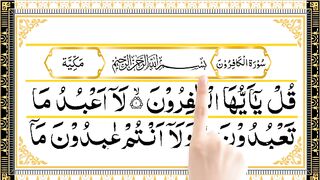 سُوْرَةُ الْكَافِرُوْنَ بِسْمِ اللهِ الرَّحْمٰنِ الرَّحِيْمِ مَكِّيَّةٌ
قُلْ يٰٓاَيُّهَا الْكٰفِرُوْنَ ۙ لَآ اَعْبُدُ مَا
تَعْبُدُوْنَ وَلَآ اَنْتُمْ عٰبِدُوْنَ مَآ